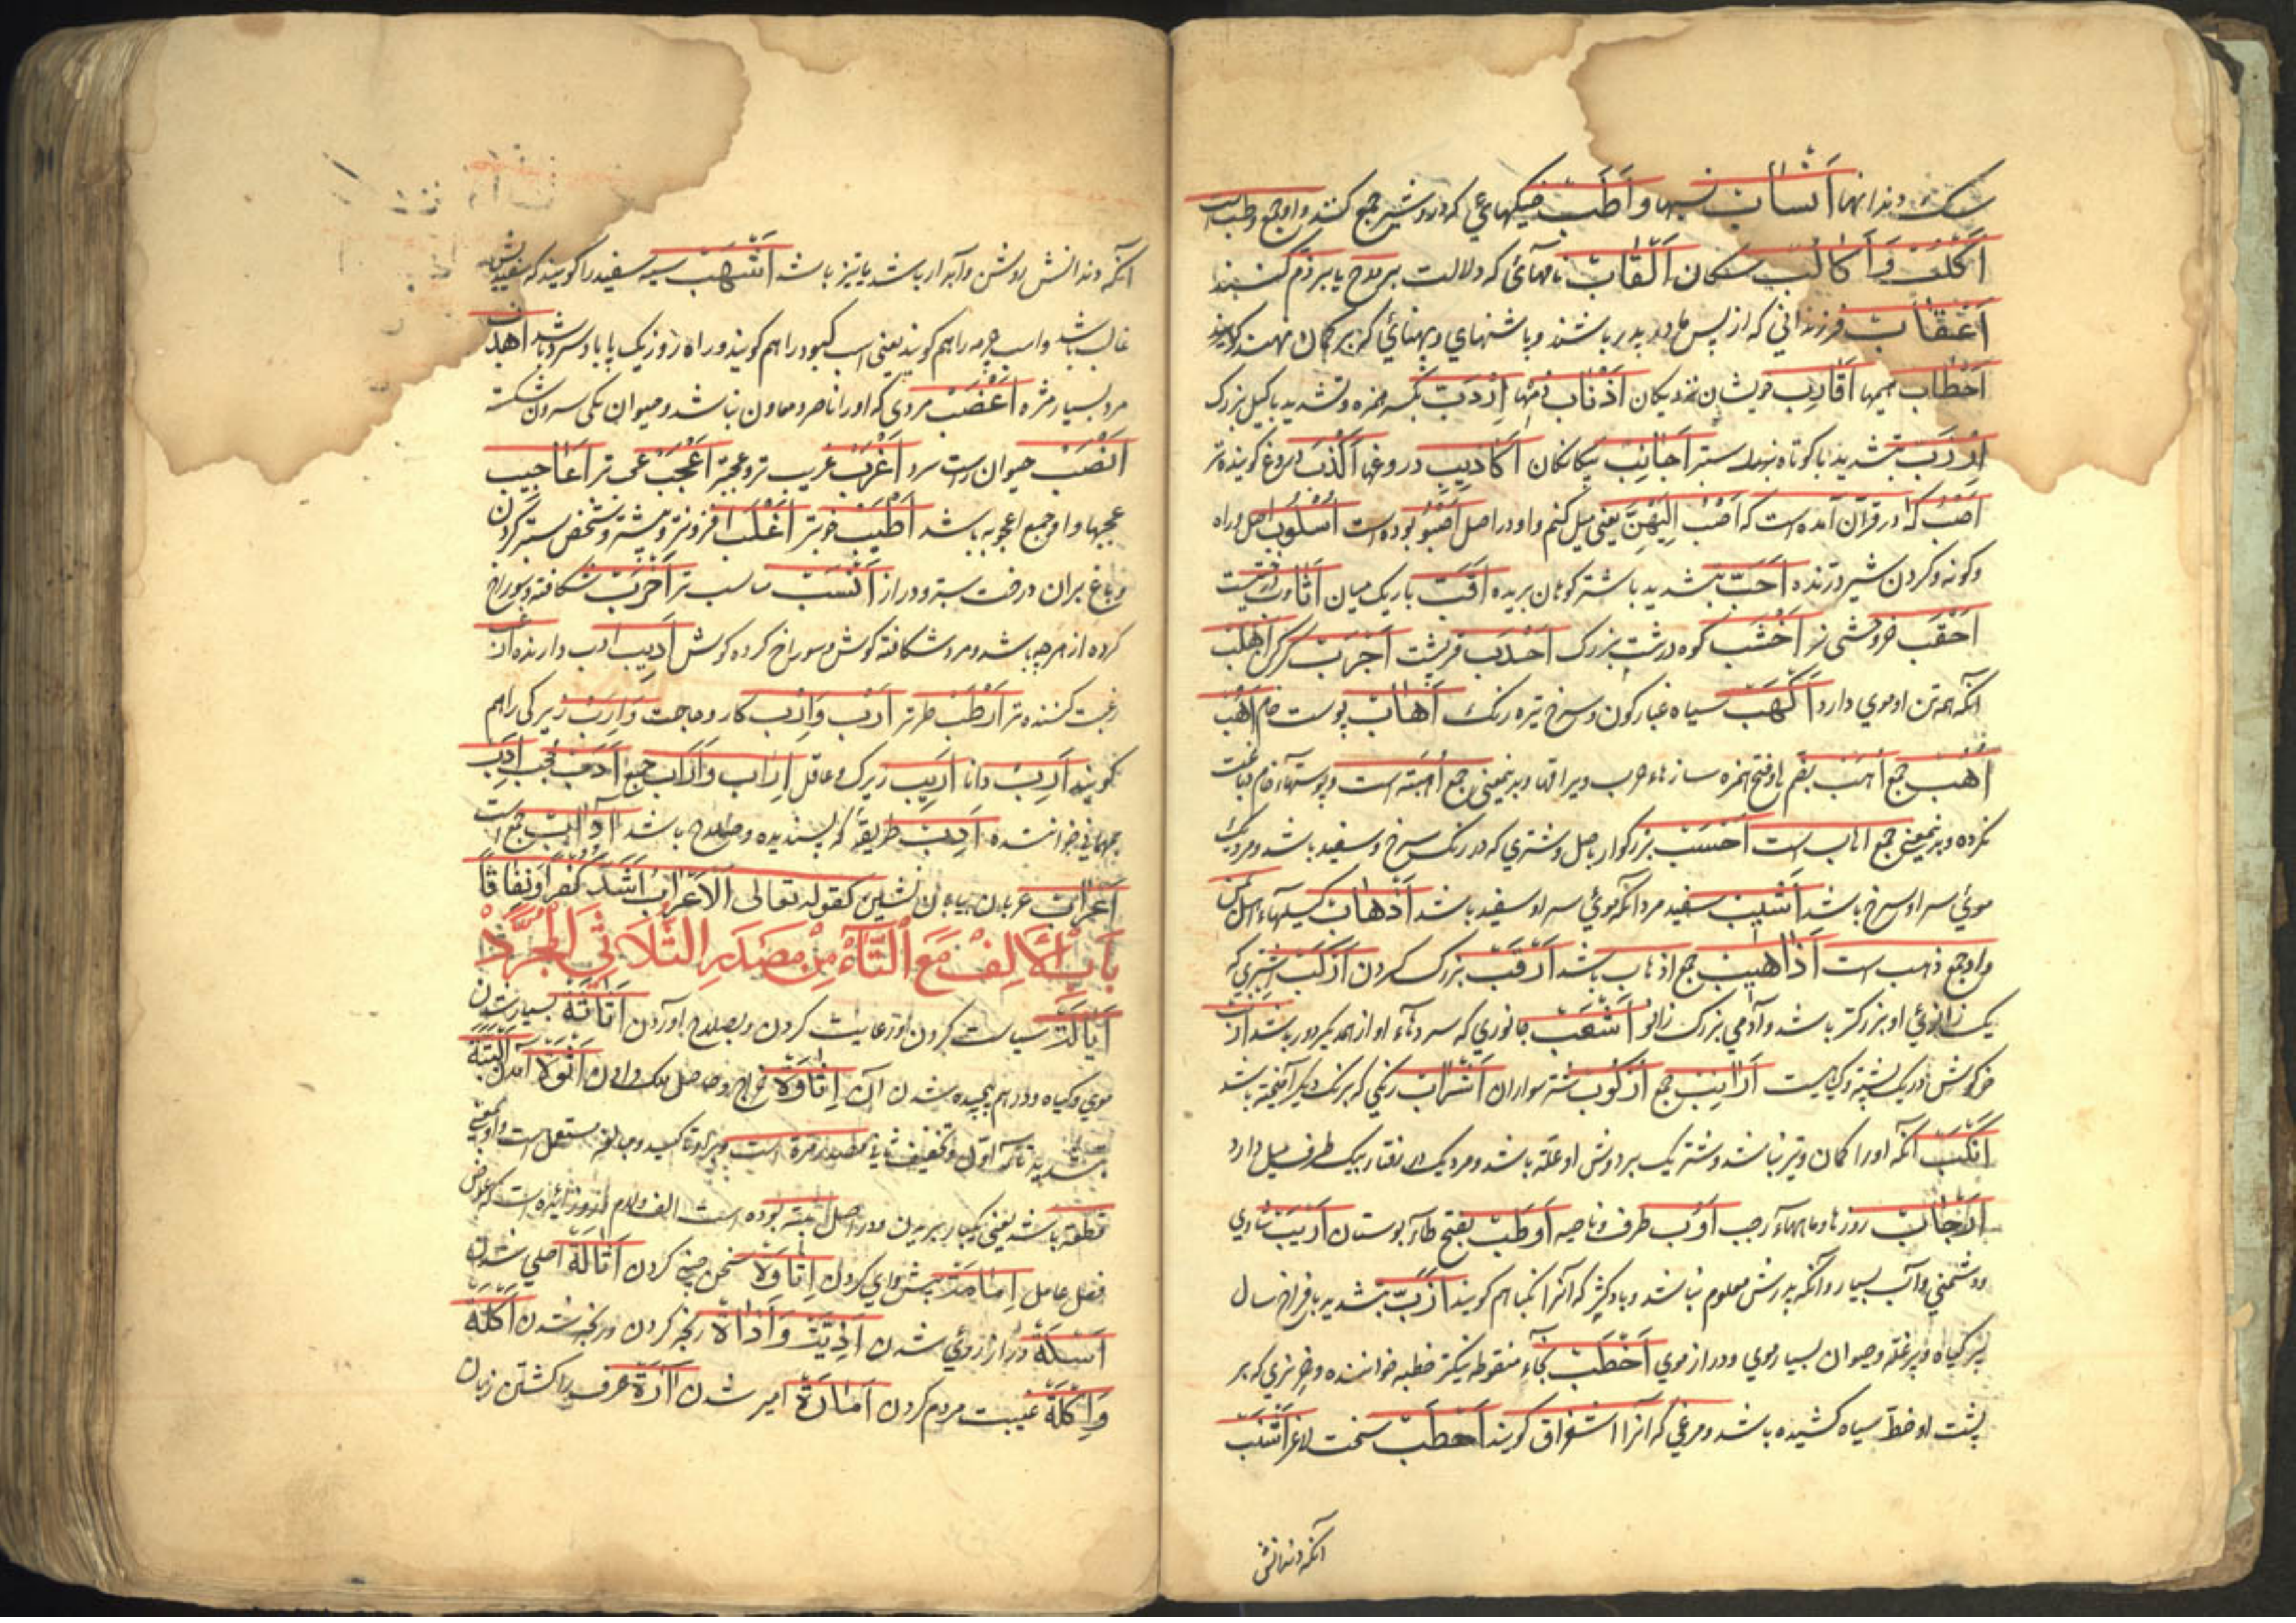 سک و دندانها اَنْسَابْ نسبها و اَطُبْ خیکهای که درو شیر جمع کنند و او جمع وطب است
اَکْلُبْ وَ اَکَالُبْ سکان اَلْقَابْ نامهائی که دلالت بر مدح یا بر ذم کنند
اَعْقَابْ فرزندانی که از پس مادر پدر باشند و پاشنهای و پهنائی که بر کمان نهند
اَحْطَابْ هیمها اَقَارِبْ خویشان نزدیکان اَذْنَابْ دمها اِرْدَبّ بکسر همزه و تشدید با کیل بزرک
اِرْزَبّ بتشدید با کوتاه ستبر اَجَانِبْ بیکانکان اَکَاذِیبْ دروغها اَکْذَبْ دروغ کوینده تر
اَصْبُ که در قرآن آمده است که اَصْبُ اِلَیْهِنَّ یعنی میل کنم و او در اصل اَصْبُوُ بوده است اُسْلُوبْ اصل و راه
و کونه و کردن شیر درنده اَجَبّ بتشدید با شتر کوهان بریده اَقَبّ باریک میان
اَحْقَبْ خر وحشی نر اَخْشَبْ کوه درشت بزرک اَحْدَبْ کوژپشت اَجْرَبْ کرکن اَهْلَبْ
آنکه همه تن او موی دارد اَکْهَبْ سیاه غبار کون و سرخ تیره رنک اِهَابْ پوست خام اُهُبْ
اُهُبْ جمع اُهَبْ بضم با و فتح همزه سازهاء حرب و یراقها و بدینمعنی جمع اُهْبَة است و پوستهاء خام دباغت
نکرده و بدینمعنی جمع اهاب است اَحْسَبْ بزرکوار باصل و شتری که در رنک سرخ و سفید باشد و مردیکه
موئ سر او سرخ باشد اَشْیَبْ سفید مرد آنکه موئ سر او سفید باشد اَذْهَابْ
و او جمع ذهب است اَذَاهِیبْ جمع اذهاب باشد اَرْقَبْ بزرک کردن اَرْکَبْ شتری که
یک زانوئ او بزرکتر باشد و آدمی بزرک زانو اَشْعَبْ جانوری که سر دو شاخ او از همدیکر دور باشد
خرکوش و باریک پشته و کیاهیست اَرَانِبْ جمع اُرْکُوبْ شتر سواران اَشْرَابْ رنکی که برنک دیکر آمیخته باشد
اَنْکَبْ آنکه او را کمان و تیر نباشد و شتر یک بر دوش او علّه باشد و مردیکه در رفتار بیک طرف میل دارد
اَرْجَابْ روزها و ماههاء رجب اَوْبْ طرف و ناحیه اَوْطَبْ بفتح طآء بوستان اَزْیَبْ شادی
و دشمنی و آب بسیار و آنکه پدرش معلوم نباشد و باد کژ که آنرا نکبا هم کویند اَزَبّ بتشدید با فراخ سال
پر کیاه و پر غله و حیوان بسیار موی و دراز موی اَخْطَبْ بخآء منقوطه نیکتر خطبه خواننده و خر نری که بر
پشت او خط سیاه کشیده باشد و مرغی که آنرا اشقراق کویند اَحْطَبْ سخت لاغر اَشْنَبْ
آنکه دندانش
آنکه دندانش روشن و آبدار باشد یا تیز باشد اَشْهَبْ سیه سفید را کویند که سفیدیش
غالب باشد و اسب چرمه را هم کویند یعنی اسب کبود را هم کویند و راه روز نیک یا باد سرد باشد اَهْدَبْ
مرد بسیار مژه اَعْضَبْ مردی که او را ناصر و معاون نباشد و حیوان یکی سرون شکسته
اَنْصَبْ حیوان راست سرو اَغْرَبْ غریب تر و عجبتر اَعْجَبْ عجب تر اَعَاجِیبْ
عجبها و او جمع اعجوبه باشد اَطْیَبْ خوبتر اَغْلَبْ افزونتر و بیشتر و شخص ستبر کردن
و باغ بران درخت ستبر و دراز اَنْسَبْ مناسب تر اَخْرَبْ شکافته و سوراخ
کرده از هر چه باشد و مرد شکافته کوش و سوراخ کرده کوش اَدِیبْ ادب دارنده اَرْغَبْ
رغبت کننده تر اَرْطَبْ طرتر اَرَبْ وَ اِرْبْ کار و حاجت وَ اِرْبْ زیرکی را هم
کویند اَرِبْ دانا اَرِیبْ زیرک و عاقل اِرَابْ وَ آرَابْ جمع اَدَبْ عجب اَدِبْ
بمهمانی خواننده اَدَبْ طریقه که پسندیده و صلاح باشد آدَابْ جمع است
اَعْرَابْ عربان بیابان نشین کقوله تعالی اَلْاَعْرَابُ اَشَدُّ کُفْرًا وَ نِفَاقًا
بَابُ الْاَلِفْ مَعَ التَّآءْ مِنْ مَصْدَرِ الثُّلَاثِی الْمُجَرَّدْ
اِیَالَة سیاست کردن و رعایت کردن و بصلاح آوردن اَثَاثَة بسیار شدن
موی و کیاه و درهم پیچیده شدن آن اِتَاوَة خراج و حاصل ملک دادن اَتْوَة آمدن اَلْبَتَّة
بتشدید تآء اول و تخفیف ثانی مصدر مرة است و برای تاکید و مبالغه مستعمل است و او بمعنی
قطعة باشد یعنی یکبار بریدن و در اصل بتة بوده است الف و لام درو زایده است که عوض
فعل عامل اِمَامَة پیش وای کردن اِثَاوَة سخن چینی کردن اَثَالَة اصلی شدن
اَسَلَة دراز روی شدن اَذِیَّة وَ اَذَاة رنجه کردن و رنجه شدن اُکْلَة
وَ اِکْلَة غیبت مردم کردن اَمَارَة امیر شدن